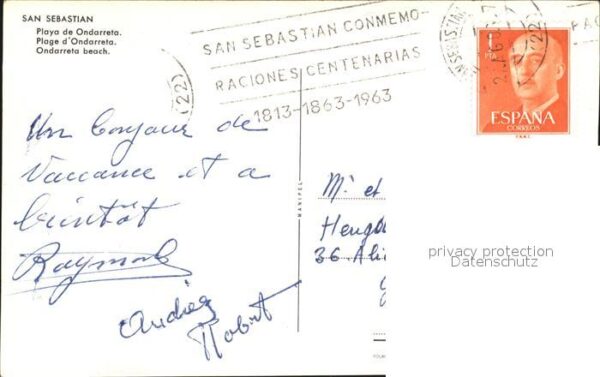 SAN SEBASTIAN
Playa de Ondarreta.
Plage d'Ondarreta.
Ondarreta beach.
SAN SEBASTIAN CONMEMO-
RACIONES CENTENARIAS
1813-1863-1963
(22)
(22)
ESPAÑA
CORREOS
Un bonjour de
Vaccance et a
bientôt
Raymond
Andrée
Robert
MANIPEL
Mr et
Heugd
36 Ali
privacy protection
Datenschutz